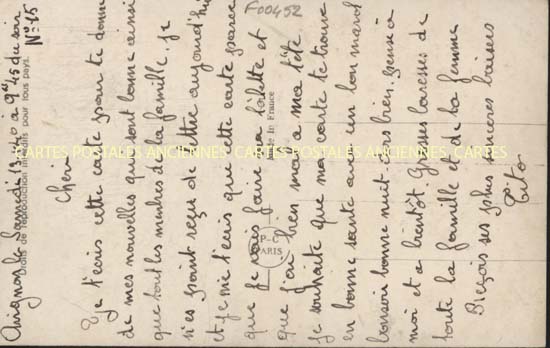 Avignon le Samedi 13-4-40 a 9h 45 du soir
N° 15
Cheri
Je t'écris cette carte pour te donner
de mes nouvelles qui sont bonne ainsi
que tout les membres de la famille. je
n'es point reçus de lettre aujourd'hui
et je ne t'ecris que cette carte parce
que je vais faire sa toilette et
que j'ai bien mal a ma tête.
je souhaite que ma carte te trouve
en bonne santé avec un bon moral
bonsoir bonne nuit dors bien. pense a
moi et a bientôt. Grosses caresses de
toute la famille et de ta femme
Reçois ses plus tendres baisers
Tito
Droits de reproduction interdits pour tous pays.
P-C
PARIS
Made in France
F00452
CARTES POSTALES ANCIENNES CARTES POSTALES ANCIENNES CARTES POSTALES ANCIENNES